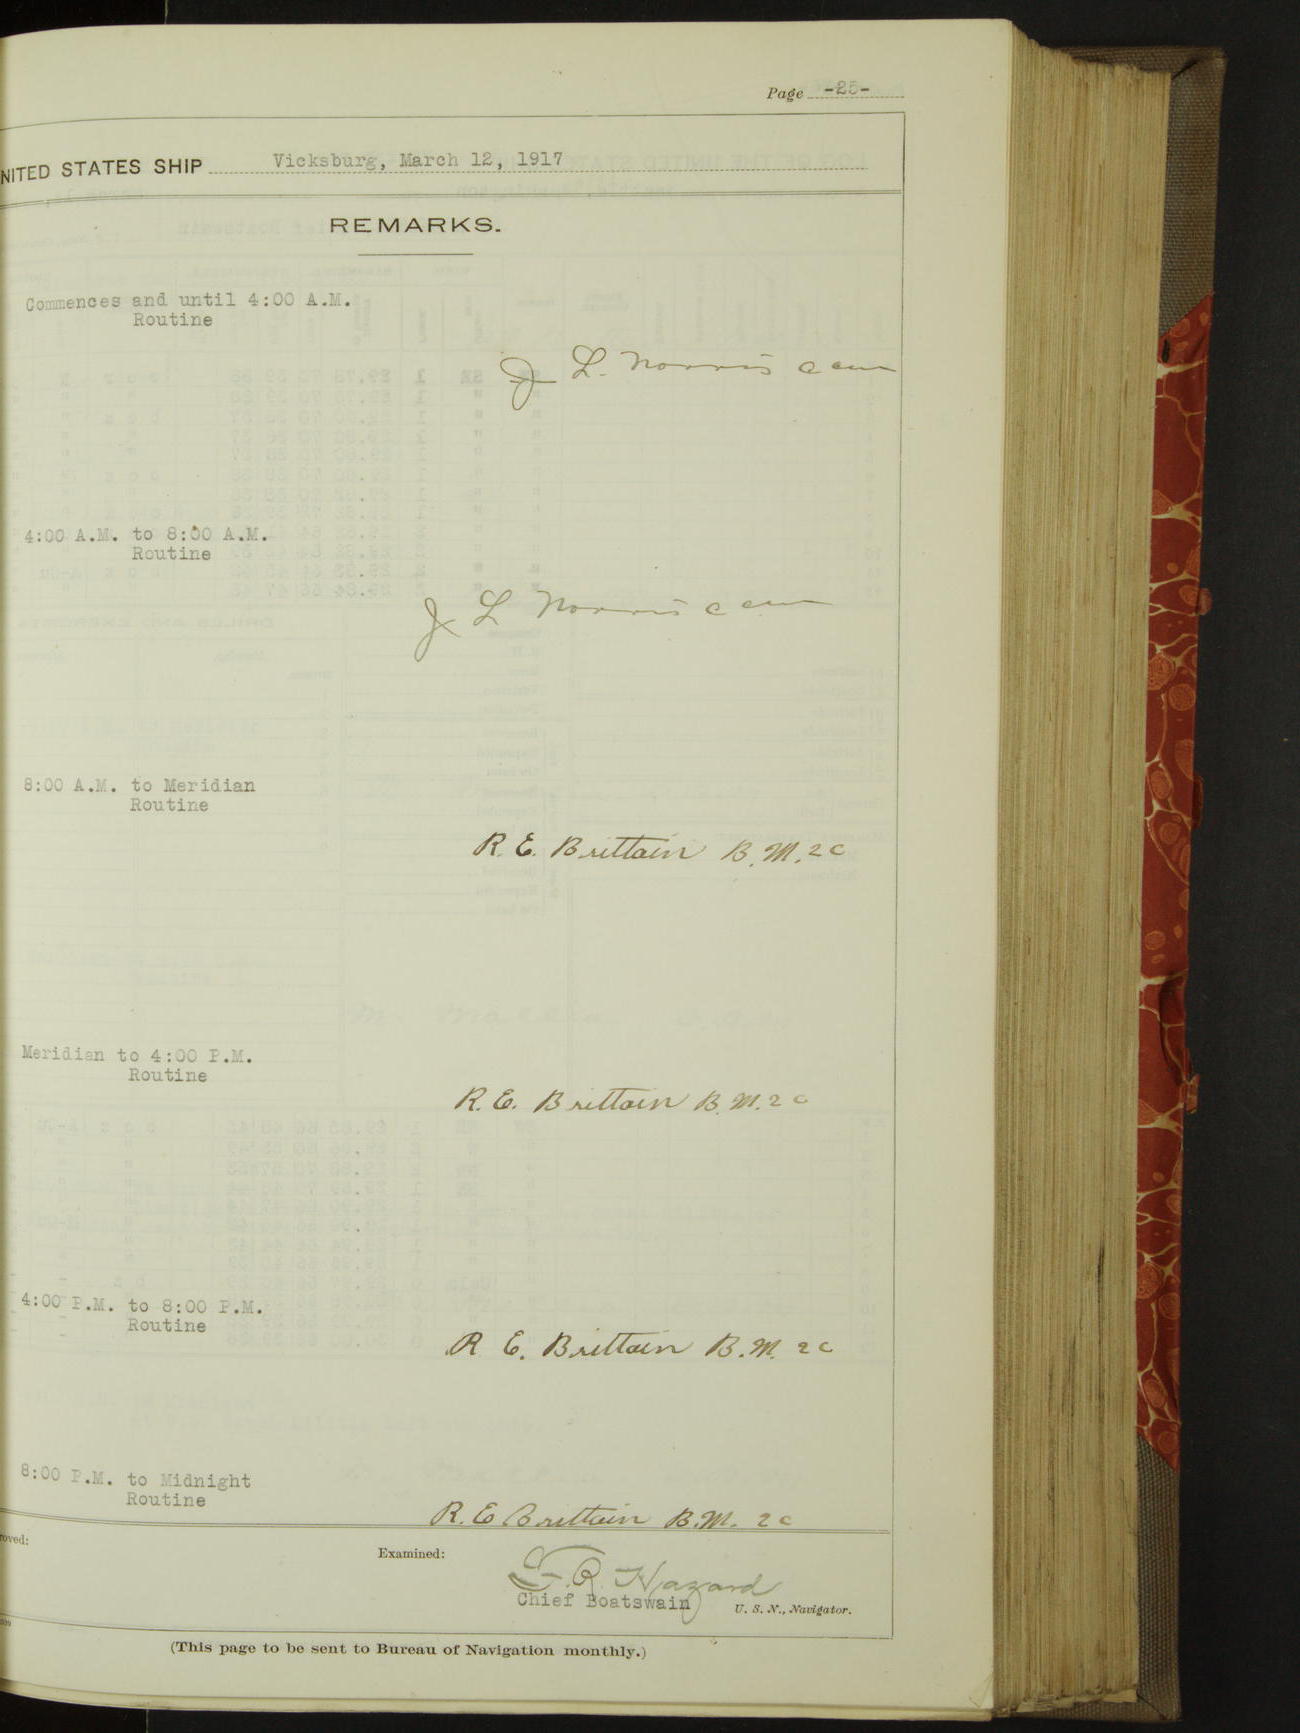 Page -25-
NITED STATES SHIP Vicksburg, March 12, 1917
REMARKS.
Commences and until 4:00 A.M.
Routine
J L. Norris C C M
4:00 A.M. to 8:00 A.M.
Routine
J L Norris C C M
8:00 A.M. to Meridian
Routine
R. E. Brittain B.M. 2 C
Meridian to 4:00 P.M.
Routine
R. E. Brittain B.M. 2 C
4:00 P.M. to 8:00 P.M.
Routine
R E. Brittain B.M. 2 C
8:00 P.M. to Midnight
Routine
R. E Brittain B.M. 2 C
roved:
Examined:
R. Hazard
Chief Boatswain U. S. N., Navigator.
(This page to be sent to Bureau of Navigation monthly.)